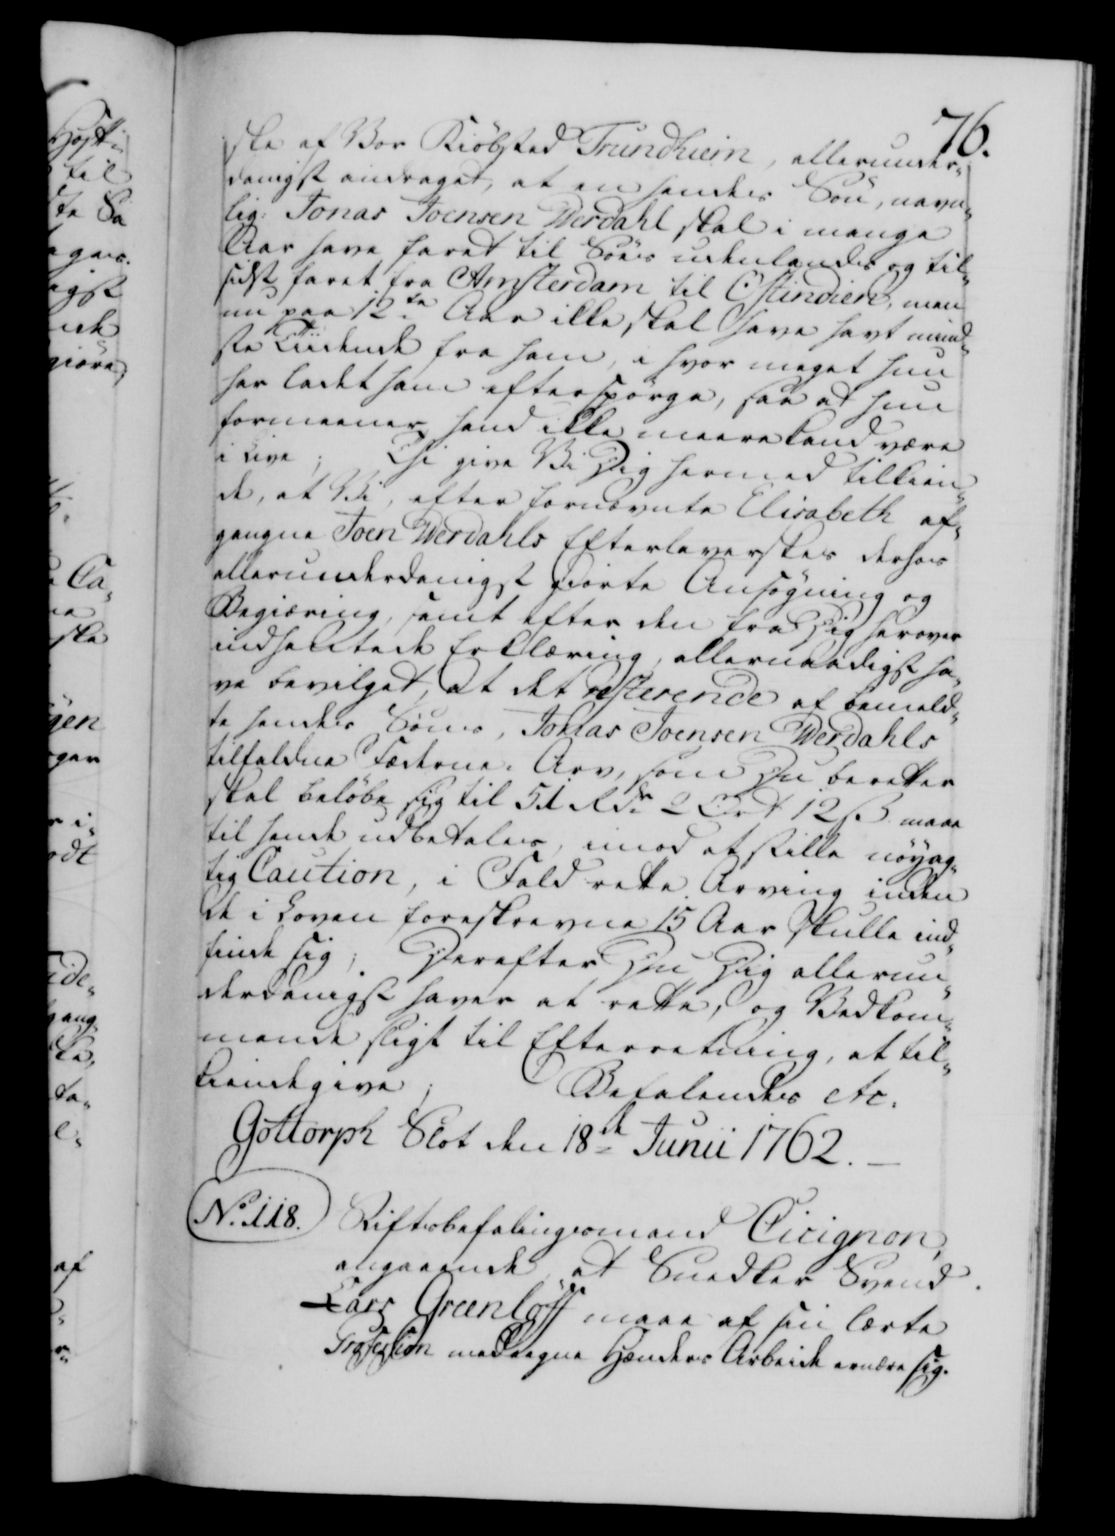 76.
ske af Vor Kiöbsted Trundhiem, allerunder-
danigst andraget, at en hendes Søn, navn-
lig: Jonas Joensen Werdahl skal i mange
Aar have faret til Söes udenlands og til-
sidst faret fra Amsterdam til Ostindien, men
nu paa 12te Aar ikke skal have havt mind-
ste Tiidende fra ham, i hvor meget hun
har ladet ham efterspörge, saa at hun
formeener, hand ikke meere kand være
i Live; Thi give Vi Dig hermed tilkien-
de, at Vi, efter fornævnte Elisabeth af-
gangne Joen Werdahls Efterleverskes derhos
allerunderdanigst giorte Ansögning og
Begiæring, samt efter den fra Dig herover
indhentede Erklæring, allernaadigst ha-
ve bevilget, at det resterende af bemeld-
te hendes Söns, Jonas Joensen Werdahls
tilfaldne Fæderne-Arv, som Du beretter
skal belöbe sig til 51 Rdr 2 Ort 12 s. maae
til hende udbetales, imod at stille nöyag-
tig Caution, i Fald rette Arving inden
de i Loven foreskrevne 15 Aar skulle ind-
finde sig; Derefter Du Dig allerun-
derdanigst haver at rette, og Vedkom-
mende sligt til Efterretning, at til-
kiendegive; Befalendes etc.
Gottorph Slot den 18de Junii 1762.
No. 118. Stiftsbefalingsmand Cicignon,
angaaende, at Snedker Svend
Lars Greenloff maae af sin lærte
Profession med egne Hænders Arbeide ernære sig.